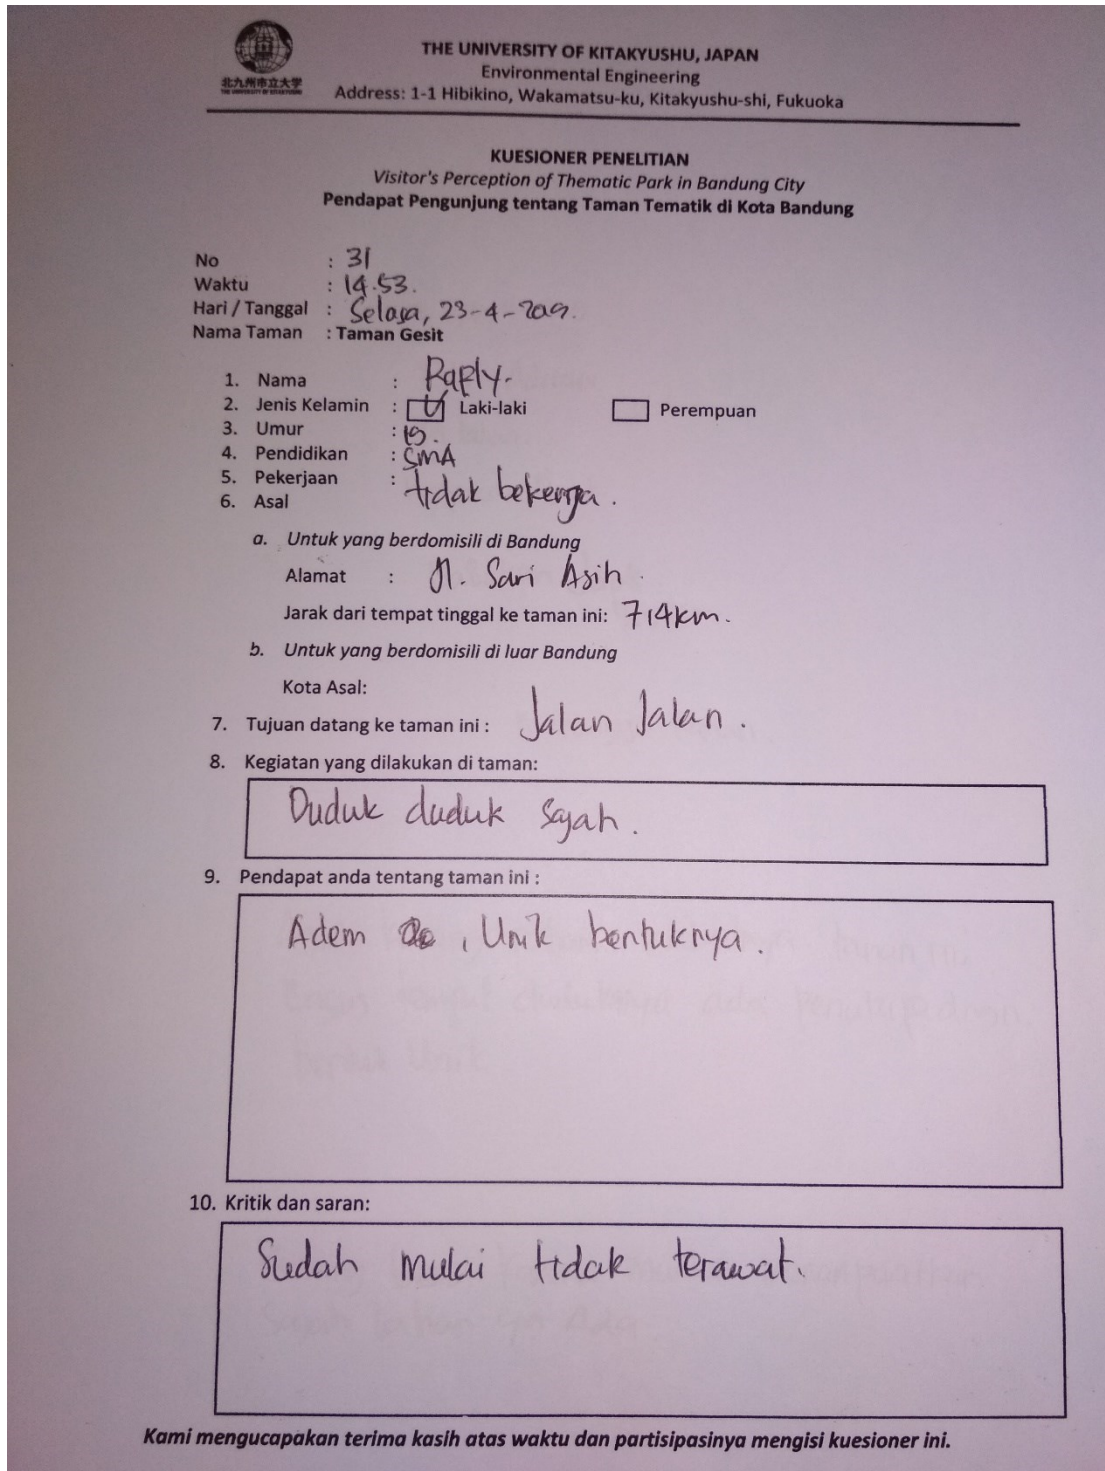 北九州市立大学
THE UNIVERSITY OF KITAKYUSHU
THE UNIVERSITY OF KITAKYUSHU, JAPAN
Environmental Engineering
Address: 1-1 Hibikino, Wakamatsu-ku, Kitakyushu-shi, Fukuoka
KUESIONER PENELITIAN
Visitor's Perception of Thematic Park in Bandung City
Pendapat Pengunjung tentang Taman Tematik di Kota Bandung
No : 31
Waktu : 14.53.
Hari / Tanggal : Selasa, 23-4-2019.
Nama Taman : Taman Gesit
1. Nama :
2. Jenis Kelamin : Laki-laki Perempuan
3. Umur :
4. Pendidikan : SMA
5. Pekerjaan : tidak bekerja.
6. Asal
a. Untuk yang berdomisili di Bandung
Alamat : Jl. Sari Asih.
Jarak dari tempat tinggal ke taman ini: 7,4km.
b. Untuk yang berdomisili di luar Bandung
Kota Asal:
7. Tujuan datang ke taman ini : Jalan Jalan.
8. Kegiatan yang dilakukan di taman:
Duduk duduk sajah.
9. Pendapat anda tentang taman ini :
Adem , Unik bentuknya.
10. Kritik dan saran:
Sudah mulai tidak terawat.
Kami mengucapakan terima kasih atas waktu dan partisipasinya mengisi kuesioner ini.